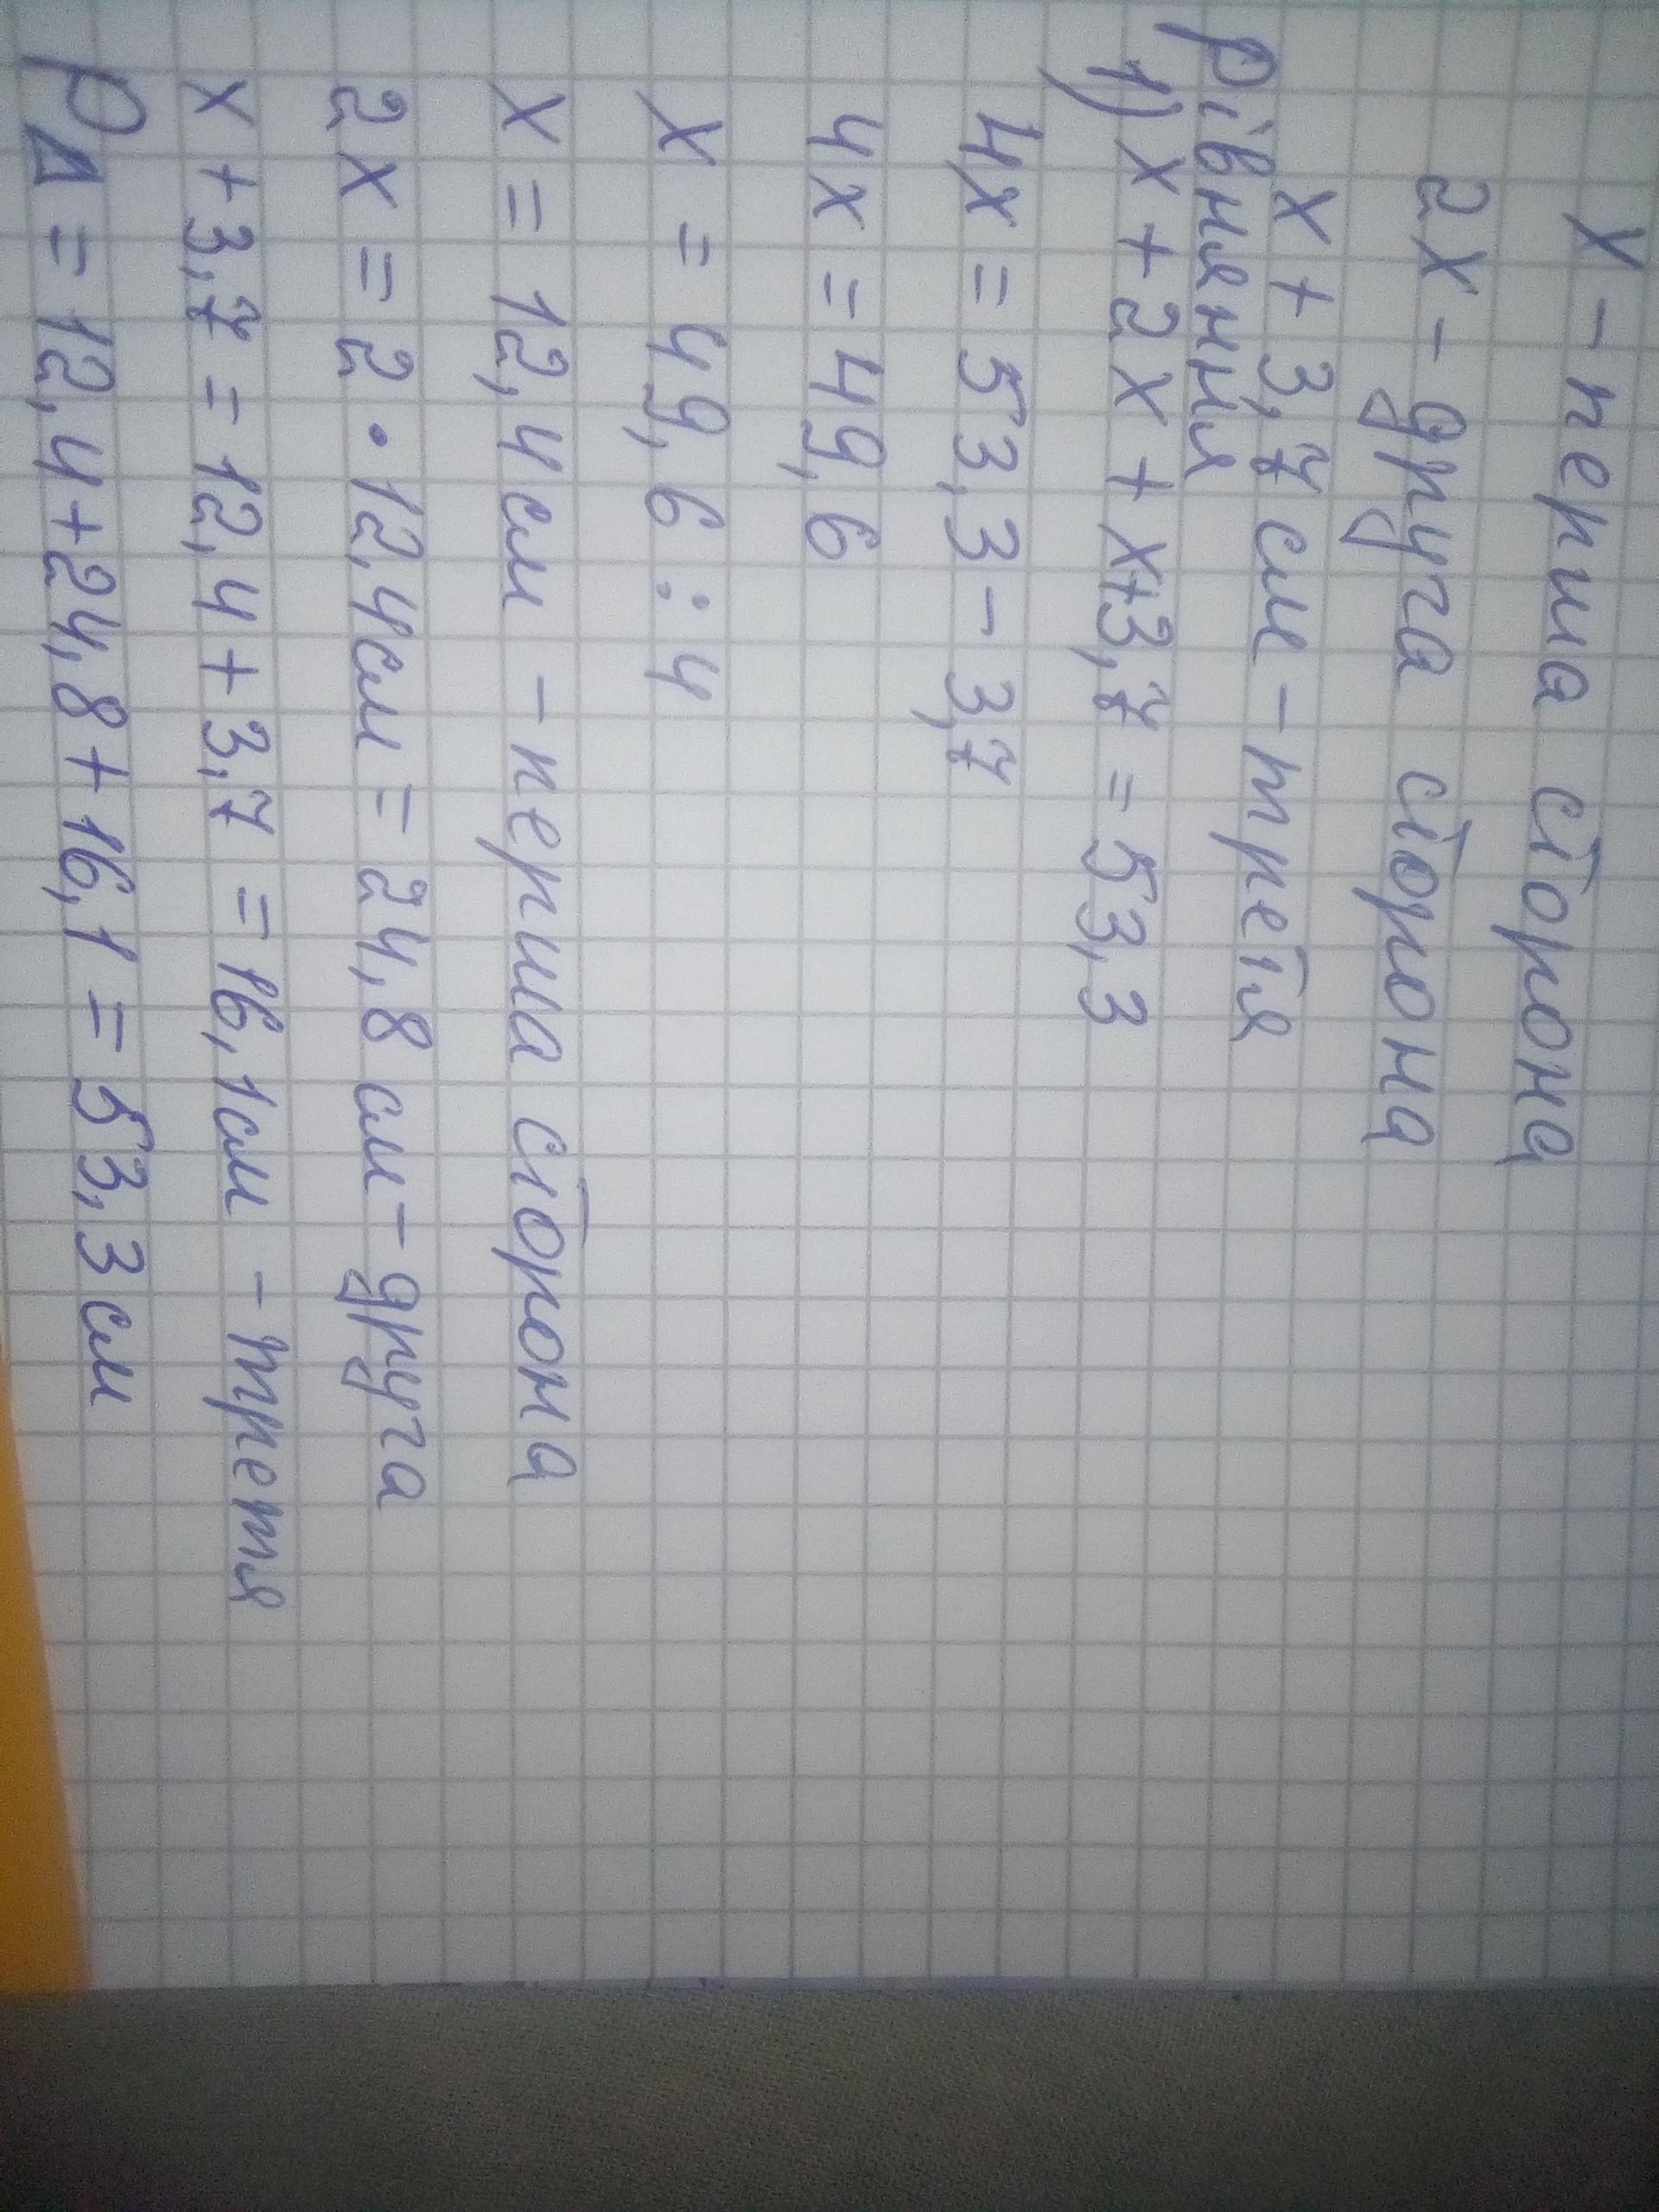 х - перша сторона
2х - друга сторона
х + 3,7 см - третя
Рівняння
1) х + 2х + х+3,7 = 53,3
4х = 53,3 - 3,7
4х = 49,6
х = 49,6 : 4
х = 12,4 см - перша сторона
2х = 2 · 12,4см = 24,8 см - друга
х + 3,7 = 12,4 + 3,7 = 16,1см - третя
РΔ = 12,4+24,8 + 16,1 = 53,3 см